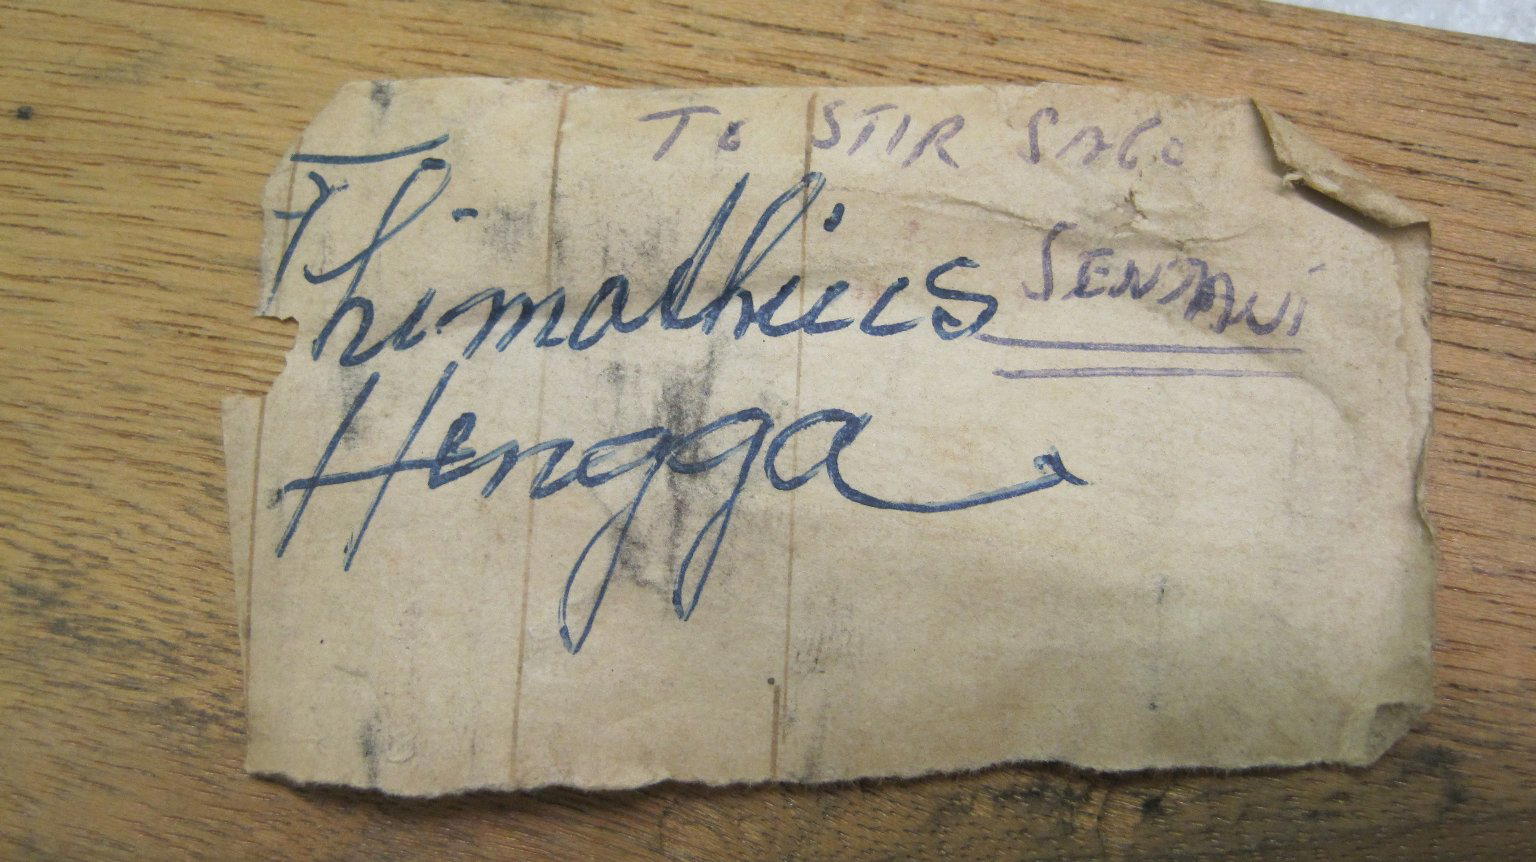 TO STIR SAGO
Thimathius SENTANI
Hengga